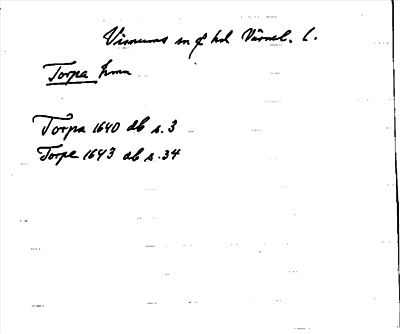 Visnums sn ⊄ hd Värml. l.
Torpa hmn
Torpa 1640 db s. 3
Torpe 1643 db s. 34